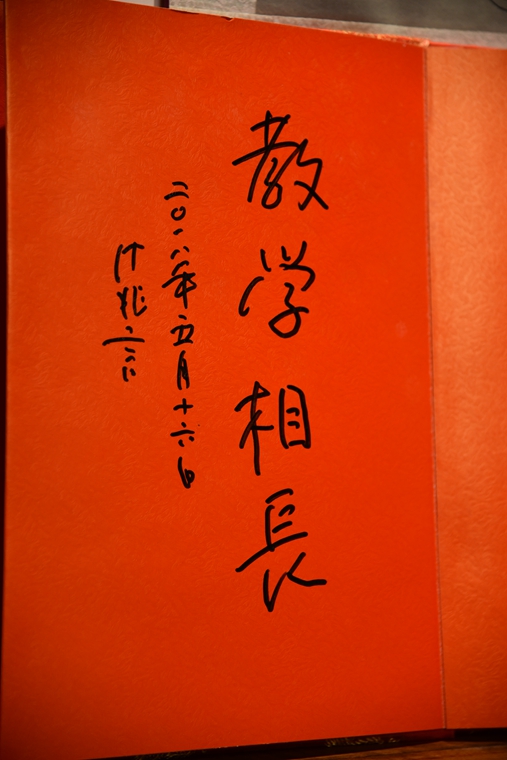 教学相長
二〇一八年五月十六日